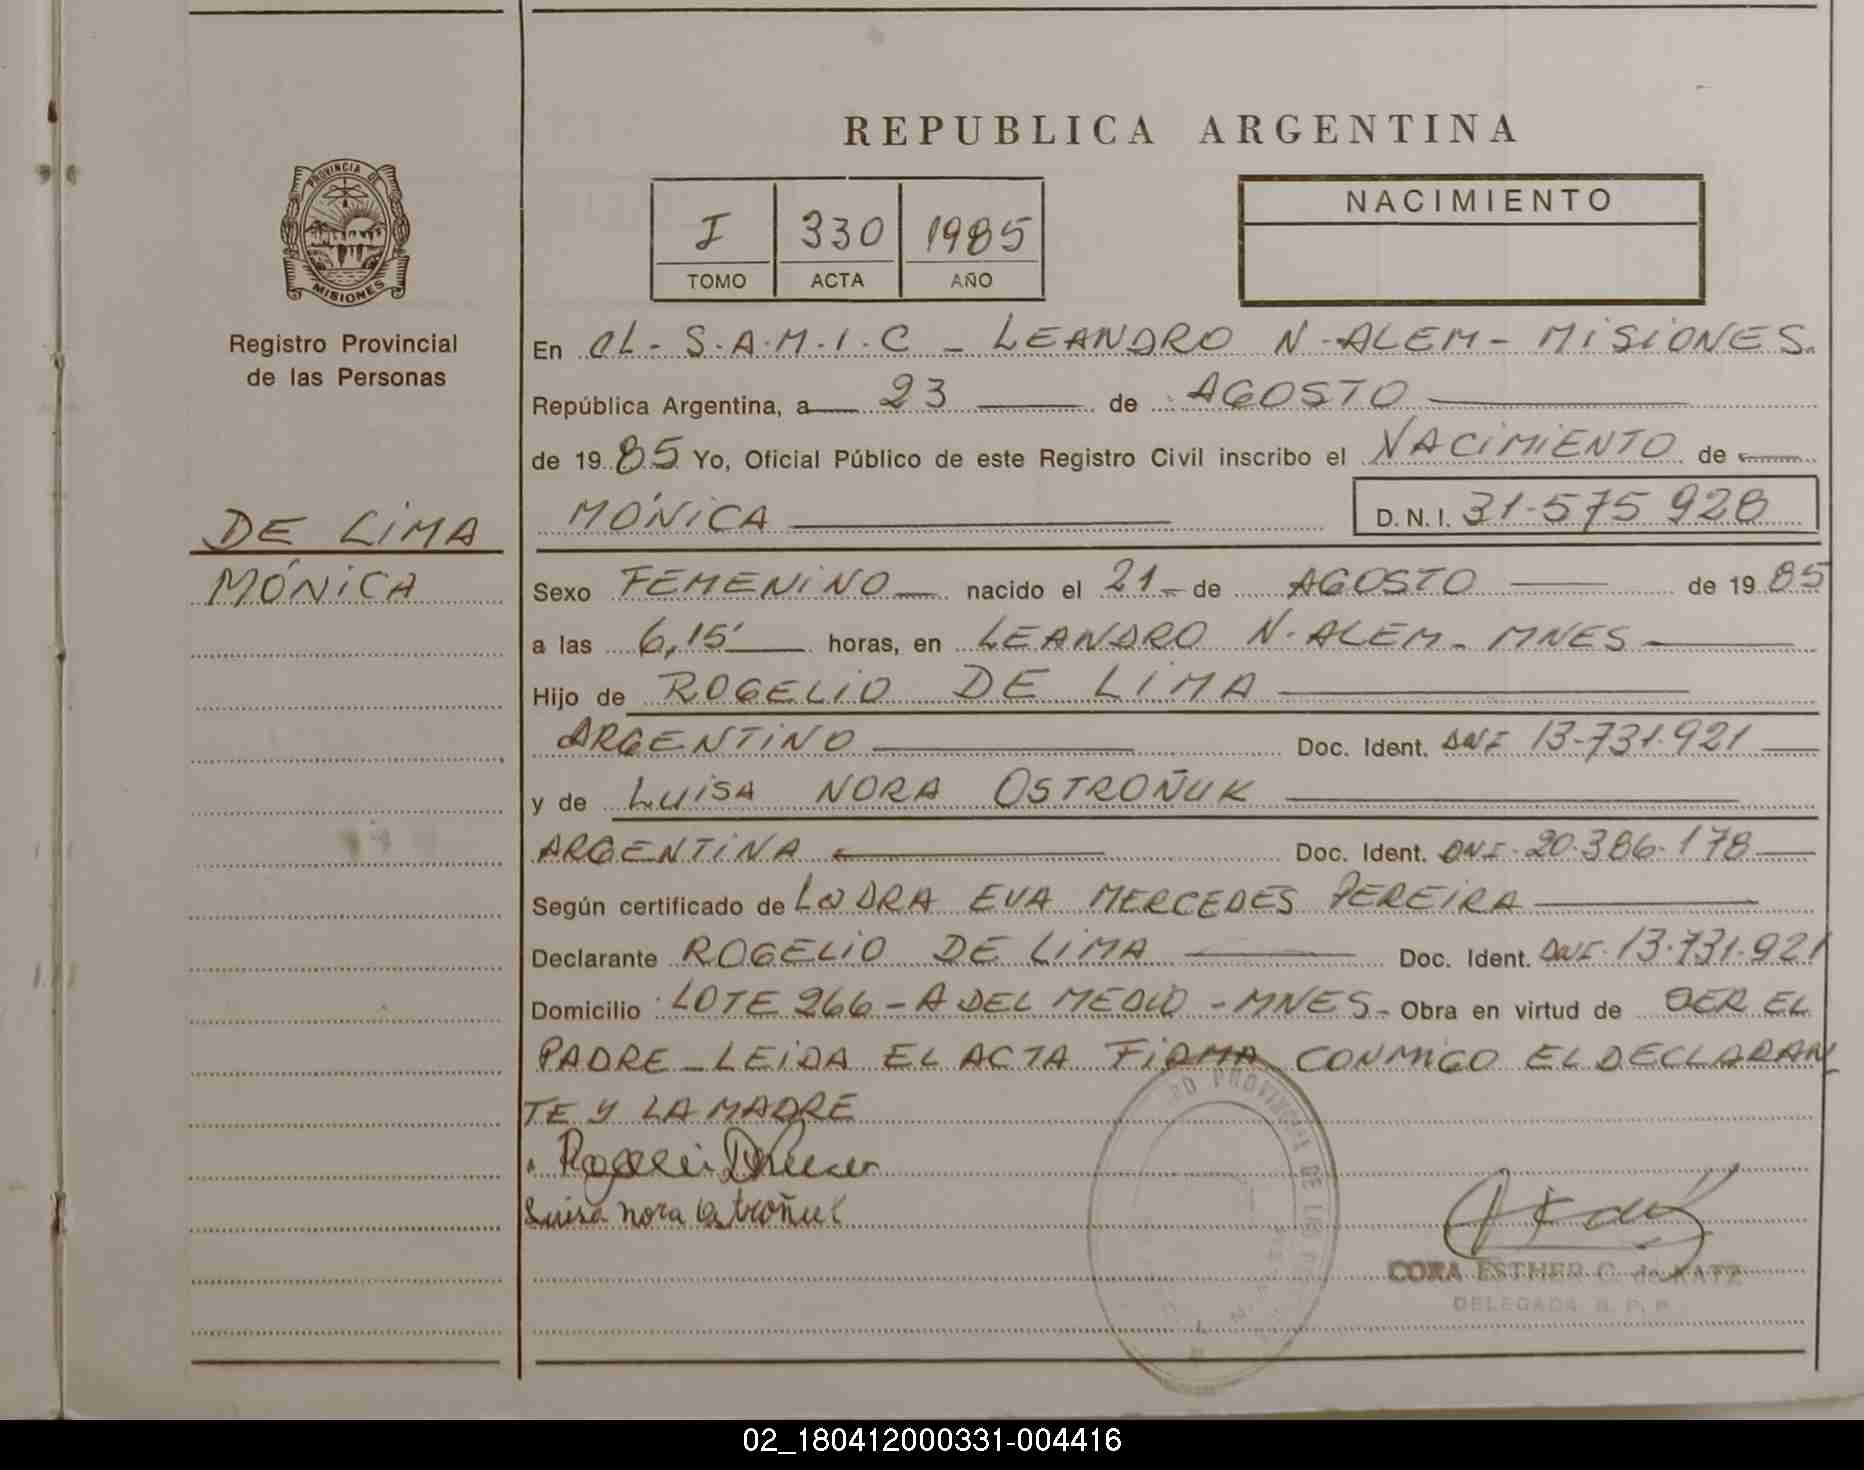 REPUBLICA ARGENTINA
PROVINCIA DE
MISIONES
Registro Provincial
de las Personas
I 330 1985
TOMO ACTA AÑO
NACIMIENTO
En EL- S.A.M.I.C - LEANDRO N-ALEM- MISIONES.
República Argentina, a 23 de AGOSTO
de 1985 Yo, Oficial Público de este Registro Civil inscribo el NACIMIENTO de
MÓNICA D.N.I. 31-575 928
DE LIMA
MÓNICA
Sexo FEMENINO nacido el 21- de AGOSTO de 1985
a las 6,15' horas, en LEANDRO N-ALEM- MNES
Hijo de ROGELIO DE LIMA
ARGENTINO Doc. Ident. DNI 13-731.921
y de LUISA NORA OSTROÑUK
ARGENTINA Doc. Ident. DNI-20.386.178
Según certificado de LA DRA EVA MERCEDES PEREIRA
Declarante ROGELIO DE LIMA Doc. Ident. DNI-13-731.921
Domicilio LOTE 266-A DEL MEDIO-MNES- Obra en virtud de SER EL
PADRE-LEIDA EL ACTA FIRMA CONMIGO EL DECLARAN
TE Y LA MADRE
Luisa nora ostroñuk
PROVINCIAL DE LAS
CORA ESTHER C. de KATZ
DELEGADA R. P. P.
02_180412000331-004416